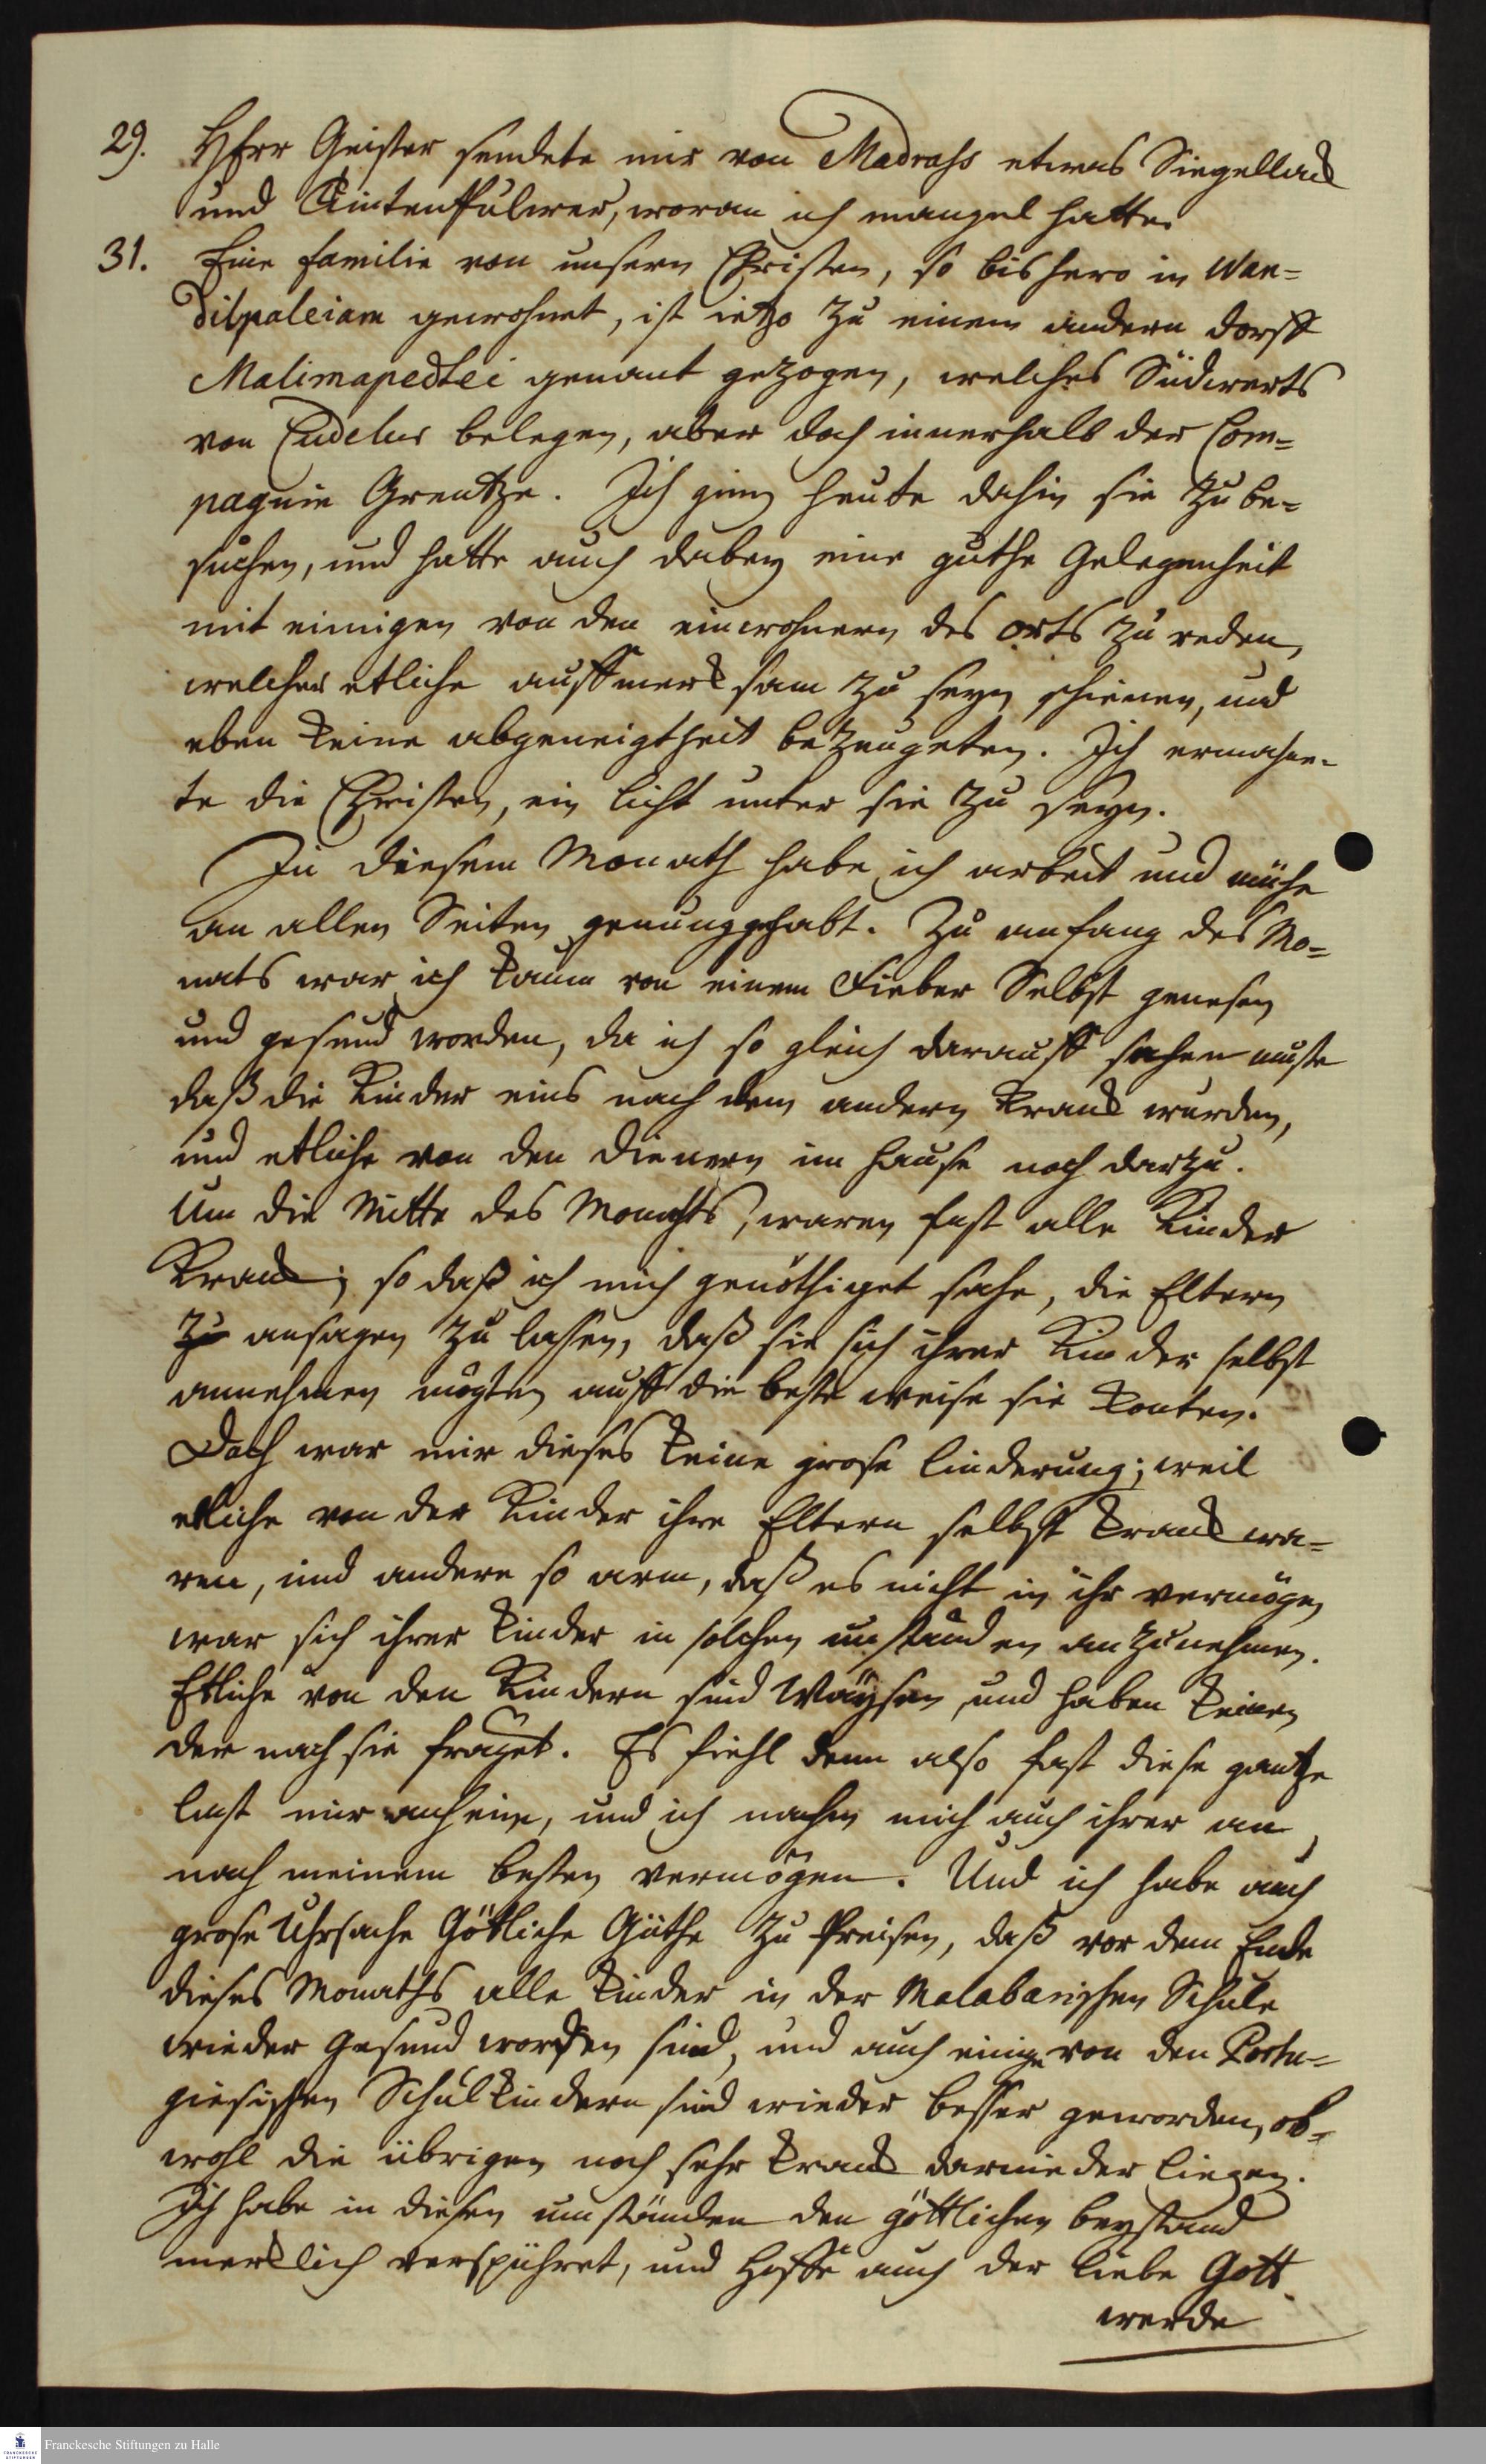 29. HErr Geister sendete mir von Madrass etwas Siegellack
und Tinten Pulwer, woran ich mangel hatte.
31. Eine familie von unsern Christen, so bis hero in Wan=
dilpaleiam gewohnet, ist ietzo zu einem andern dorff
Malimapedtei genant gezogen, welches Südwerts
von Cudelur belegen, aber doch innerhalb der Com=
pagnie Grentze. Ich ging heute dahin sie zu be=
suchen, und hatte auch dabey eine guthe Gelegenheit
mit einigen von den einwohnern des orts zu reden,
welcher etliche auffmerksam zu seyn schienen, und
eben keine abgeneigtheit bezeugeten. Ich ermahn=
te die Christen, ein licht unter sie zu seyn.
In diesem Monath habe ich arbeit und mühe
an allen Seiten genung gehabt. Zu anfang des Mo=
nats war ich kaum von einem Fieber Selbst genesen
und gesund worden, da ich so gleich darauff sehen muste
daß die Kinder eins nach dem andern krank wurden,
und etliche von den Dienern im Hause noch darzu.
Um die Mitte des Monaths, waren fast alle Kinder
Krank; so daß ich mich genöthiget sahe, die Eltern
zu ansagen zu lassen, daß sie sich ihrer Kinder selbst
annehmen mögten auff die beste weise sie konten.
Doch war mir dieses keine grose linderung; weil
etliche von der Kinder ihre Eltern selbst krank wa=
ren, und andere so arm, daß es nicht in ihr vermögen
war sich ihrer Kinder in solchen umständen anzunehmen.
Etliche von den Kindern sind Wäysen, und haben keinen
der nach sie fraget. Es fiehl denn also fast diese gantze
last mir anheim, und ich nahm mich auch ihrer an,
nach meinem besten vermögen. Und ich habe auch
grose Uhrsache Götliche Güthe zu Preisen, daß vor dem Ende
dieses Monaths alle Kinder in der Malabarischen Schule
wieder gesund worden sind, und auch einige von den Portu=
giesischen Schulkindern sind wieder besser geworden, ob=
wohl die übrigen noch sehr krank darnieder liegen.
Ich habe in diesen umständen den göttlichen beystand
merklich verspühret, und hoffe auch der liebe Gott
werde
Franckesche Stiftungen zu Halle